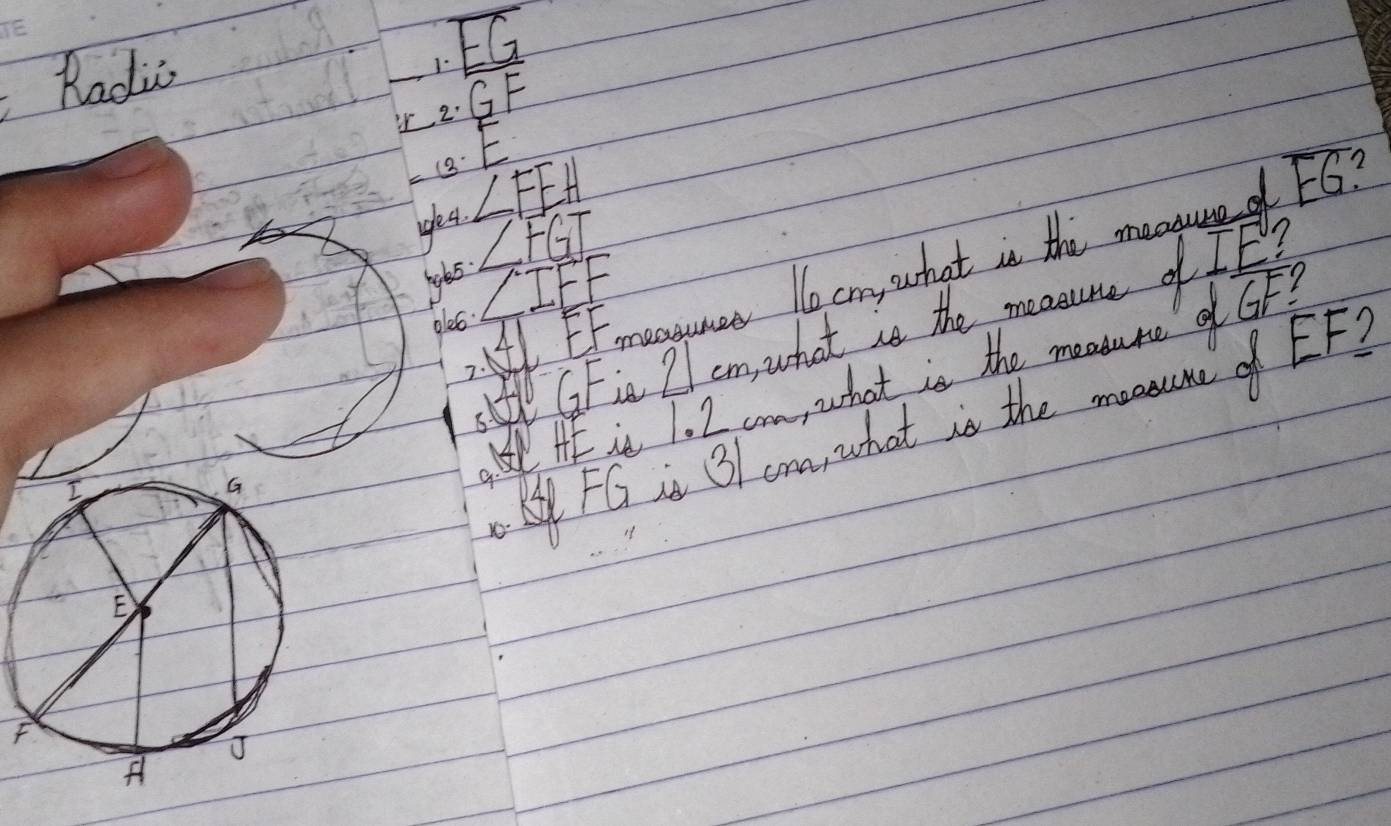 Radii
1. EG
2. GF
3. E
4. ∠FEH
5. ∠FGJ
6. ∠IEF
7. If EF measures 16 cm, what is the measure of EG?
8. If GF is 21 cm, what is the measure of IE?
9. If HE is 1.2 cm, what is the measure of GF?
10. If FG is 31 cm, what is the measure of EF?
I
G
E
F
H
J